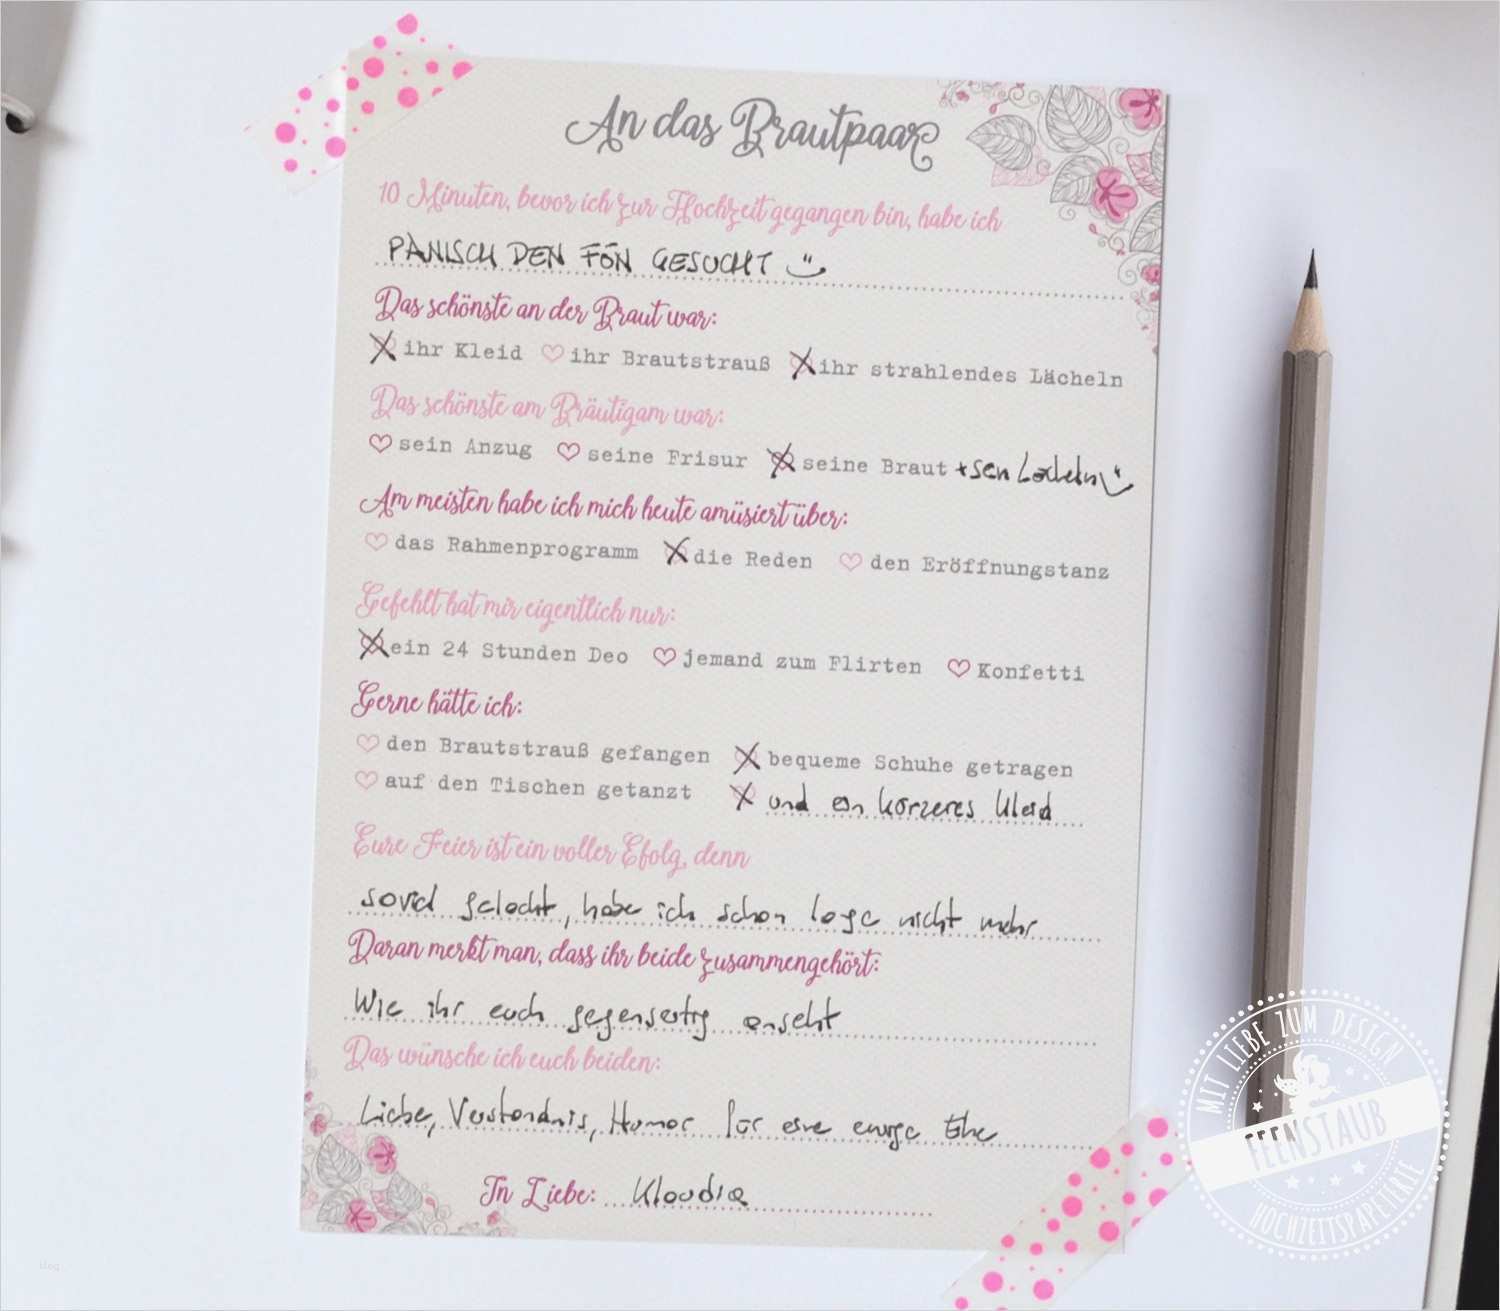 An das Brautpaar
10 Minuten, bevor ich zur Hochzeit gegangen bin, habe ich
PANISCH DEN FÖN GESUCHT
Das schönste an der Braut war:
ihr Kleid ihr Brautstrauß ihr strahlendes Lächeln
Das schönste am Bräutigam war:
sein Anzug seine Frisur seine Braut + sein Lächeln
Am meisten habe ich mich heute amüsiert über:
das Rahmenprogramm die Reden den Eröffnungstanz
Gefehlt hat mir eigentlich nur:
ein 24 Stunden Deo jemand zum Flirten Konfetti
Gerne hätte ich:
den Brautstrauß gefangen bequeme Schuhe getragen
auf den Tischen getanzt und ein kürzeres Kleid
Eure Feier ist ein voller Efolg, denn
soviel gelacht, habe ich schon lange nicht mehr
Daran merkt man, dass ihr beide zusammengehört:
Wie ihr euch gegenseitig anseht
Das wünsche ich euch beiden:
Liebe, Verständnis, Humor für eine ewige Ehe
In Liebe: Klaudia
MIT LIEBE ZUM DESIGN
FEENSTAUB
HOCHZEITSPAPETERIE
blog